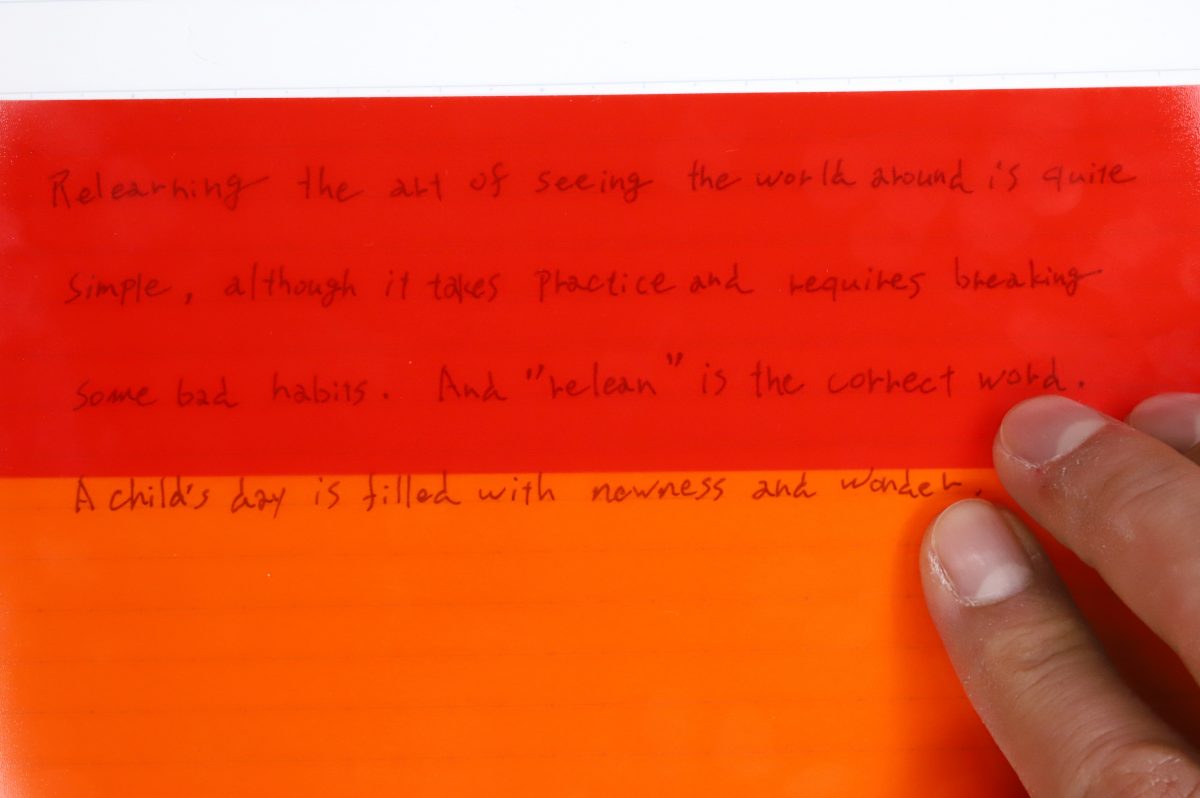 Relearning the art of seeing the world around is quite
simple, although it takes practice and requires breaking
some bad habits. And "relean" is the correct word.
A child's day is filled with newness and wonder.